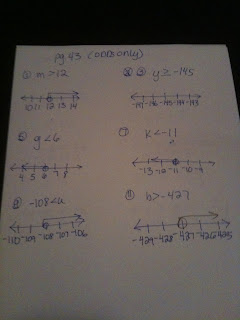 pg. 43 (odds only)
① m > 12
10 11 12 13 14
③ y ≥ -145
-147 -146 -145 -144 -143
⑤ g < 6
4 5 6 7 8
⑦ k < -11
-13 -12 -11 -10 -9
⑨ -108 < u
-110 -109 -108 -107 -106
⑪ b > -427
-429 -428 -427 -426 -425